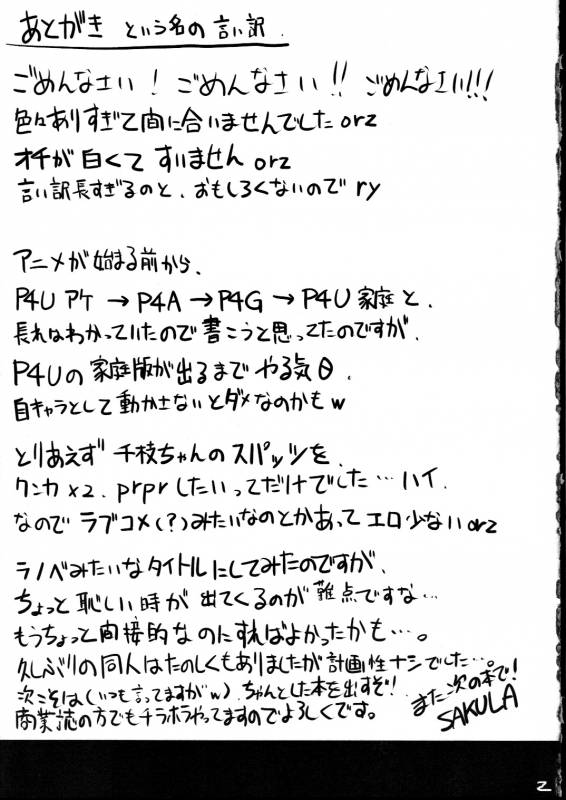 あとがき という名の 言い訳.
ごめんなさい! ごめんなさい!! ごめんなさい!!!
色々ありすぎて間に合いませんでした orz
オチが白くて すいません orz
言い訳長すぎるのと、おもしろくないので ry
アニメが始まる前から、
P4U アケ → P4A → P4G → P4U 家庭 と、
長れはわかっていたので 書こうと思ってたのですが、
P4Uの家庭版が出るまで やる気0.
自キャラとして動かさないとダメなのかもw
とりあえず 千枝ちゃんの スパッツを、
クンカ×2. prprしたいってだけでした…ハイ.
なので ラブコメ(?)みたいなのとかあって エロ少ない orz
ラノベみたいなタイトルにしてみたのですが、
ちょっと恥しい時が 出てくるのが 難点ですな…
もうちょっと間接的なのにすればよかったかも…。
久しぶりの同人はたのしくもありましたが計画性ナシでした…。
次こそは(いつも言ってますがw)、ちゃんとした本を出すぞ!
商業誌の方でもチラホラやってますのでよろしくです。
また次の本で!
SAKULA
2